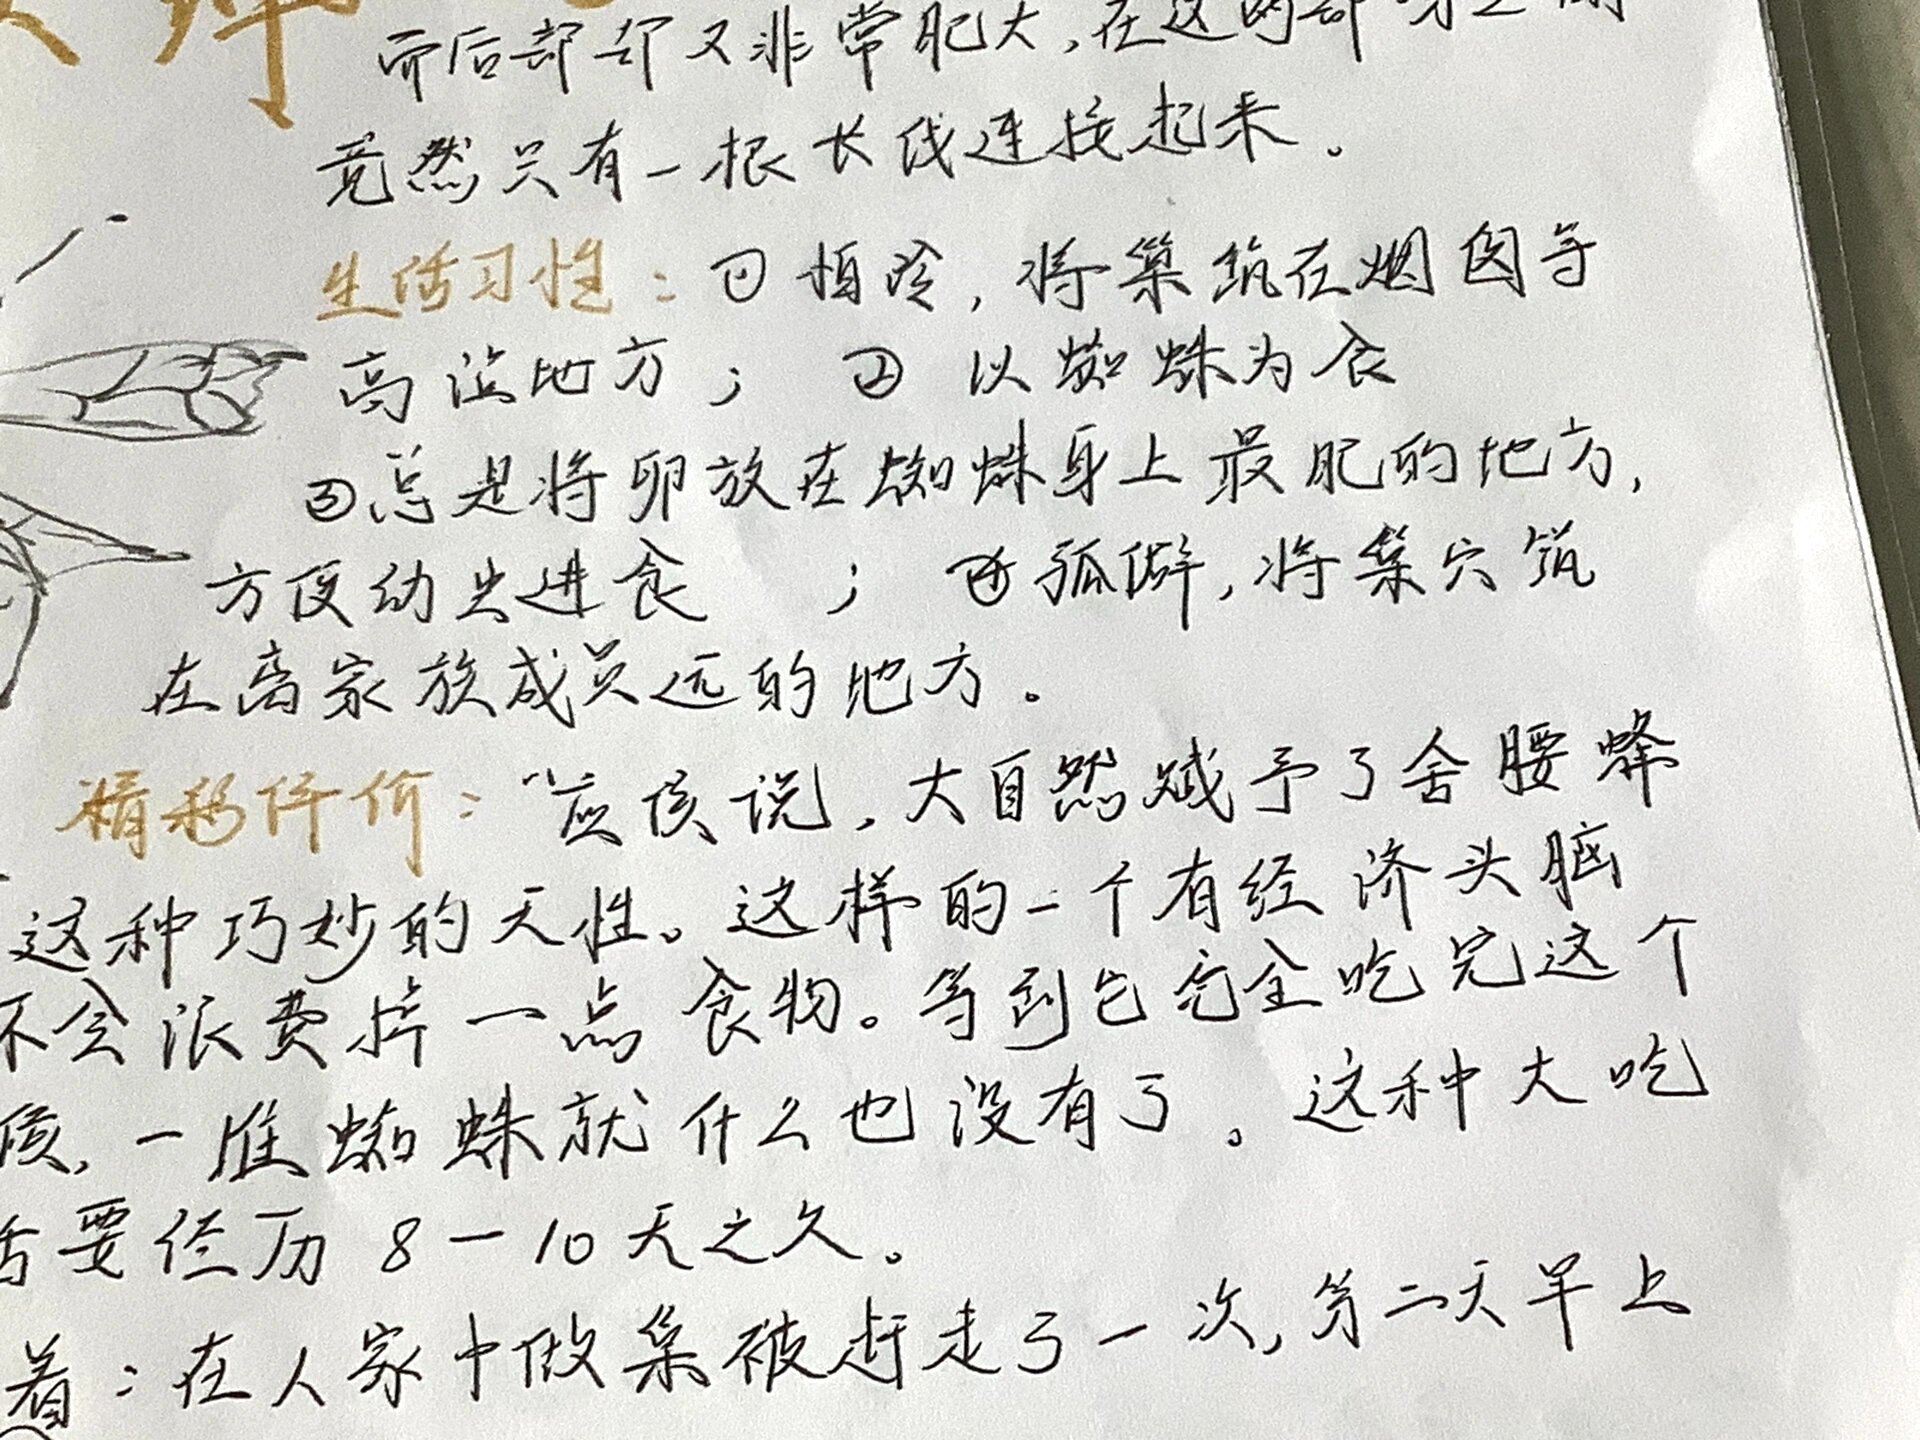 而后部却又非常肥大,在这两部分之间
竟然只有一根长线连接起来。
生活习性:①怕冷,将巢筑在烟囱等
高温地方; ② 以蜘蛛为食
③总是将卵放在蜘蛛身上最肥的地方,
方便幼虫进食 ; ④孤僻,将巢穴筑
在离家族成员远的地方。
精彩评价:“应该说,大自然赋予了舍腰蜂
这种巧妙的天性。这样的一个有经济头脑
不会浪费掉一点食物。等到它完全吃完这个
候,一准蜘蛛就什么也没有了。这种大吃
要经历8-10天之久。
着:在人家中做巢被赶走了一次,第二天早上